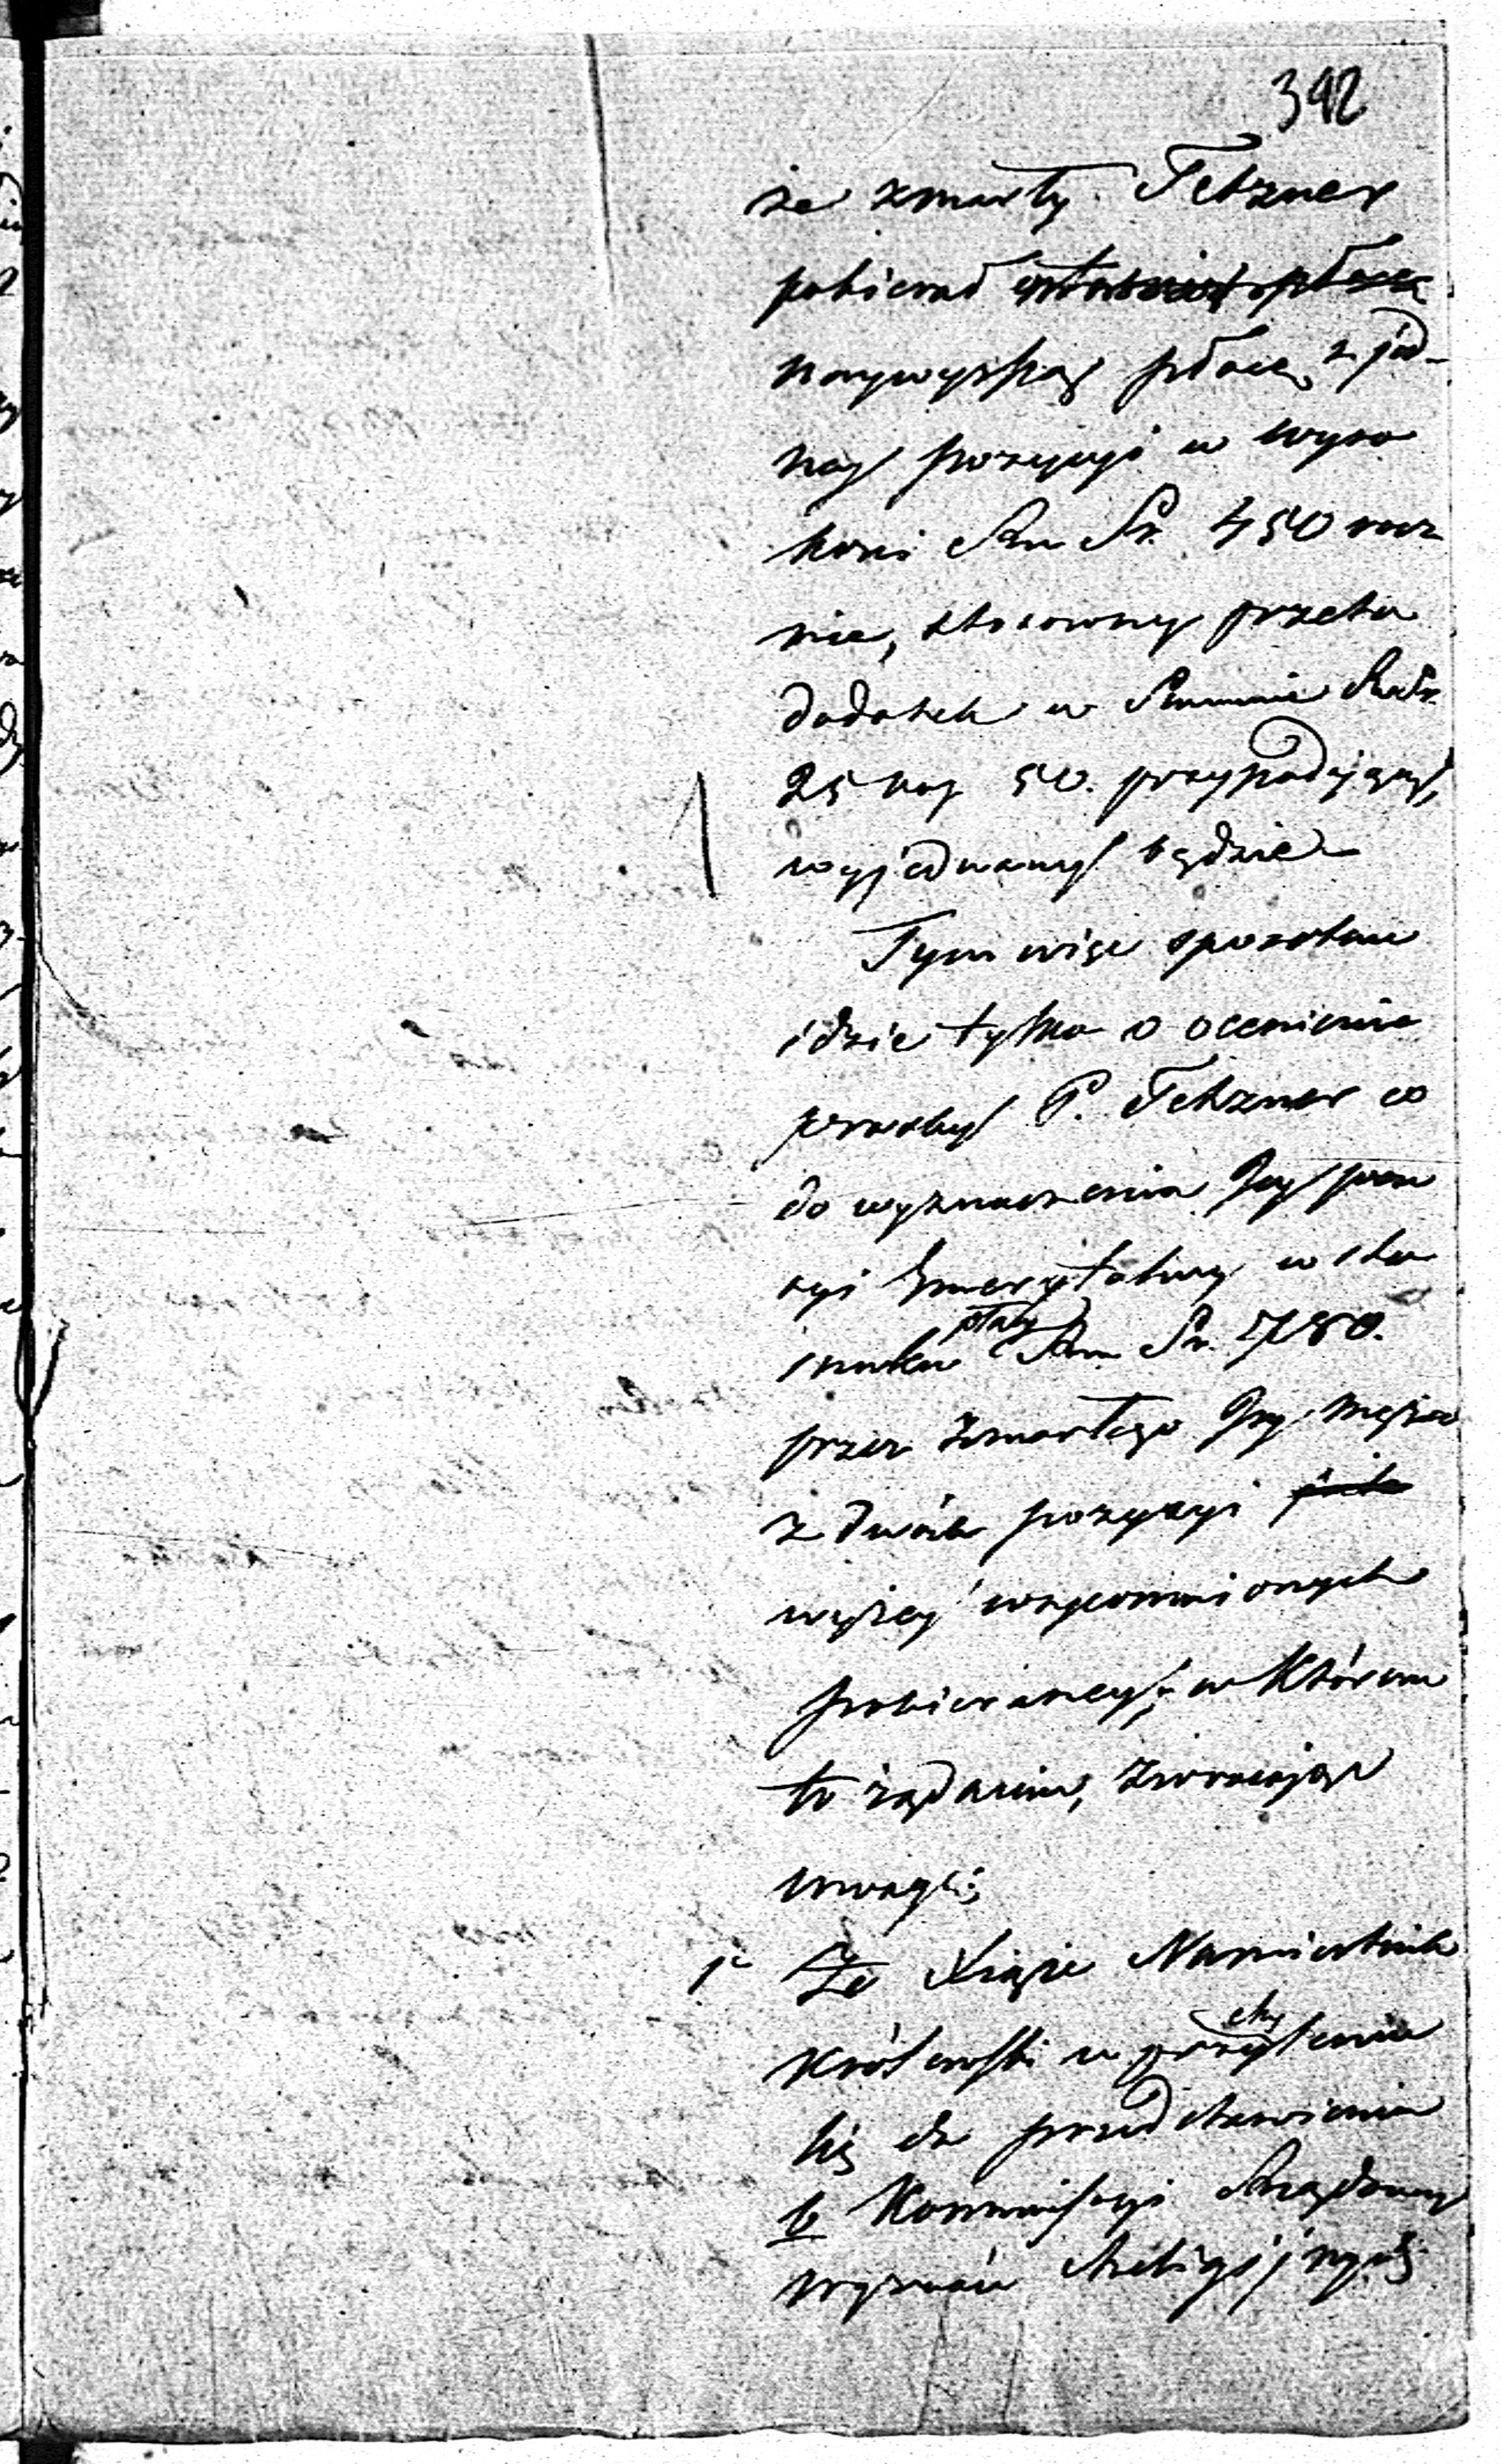 392
że zmarły Tetzner
pobierał
naywyższą płacę z jed-
ney pozycyi w wyso
kości Rsr. Sr. 450 rocz
nie, stosowny przeto
dodatek w Summie Rubs.
25 kop 50. przypadający,
wyjednany będzie
Tym więc sposobem
idzie tylko o ocenienie
prośby P. Tetzner co
do wyznaczenia Jey pen
syi Emerytalney w sto
sunku płacy Rsr. Sr. 780.
przez zmarłego Jey męża
z dwóch pozycyi
wyżey wspomnionych
pobieraney; w którem
to żądaniu, zwracając
uwagę;
1e Że Xiąże Namiestnik
Królewski w przychyleniu
się do przedstawienia
b Kommissyi Rządowey
wyznań Religijnych